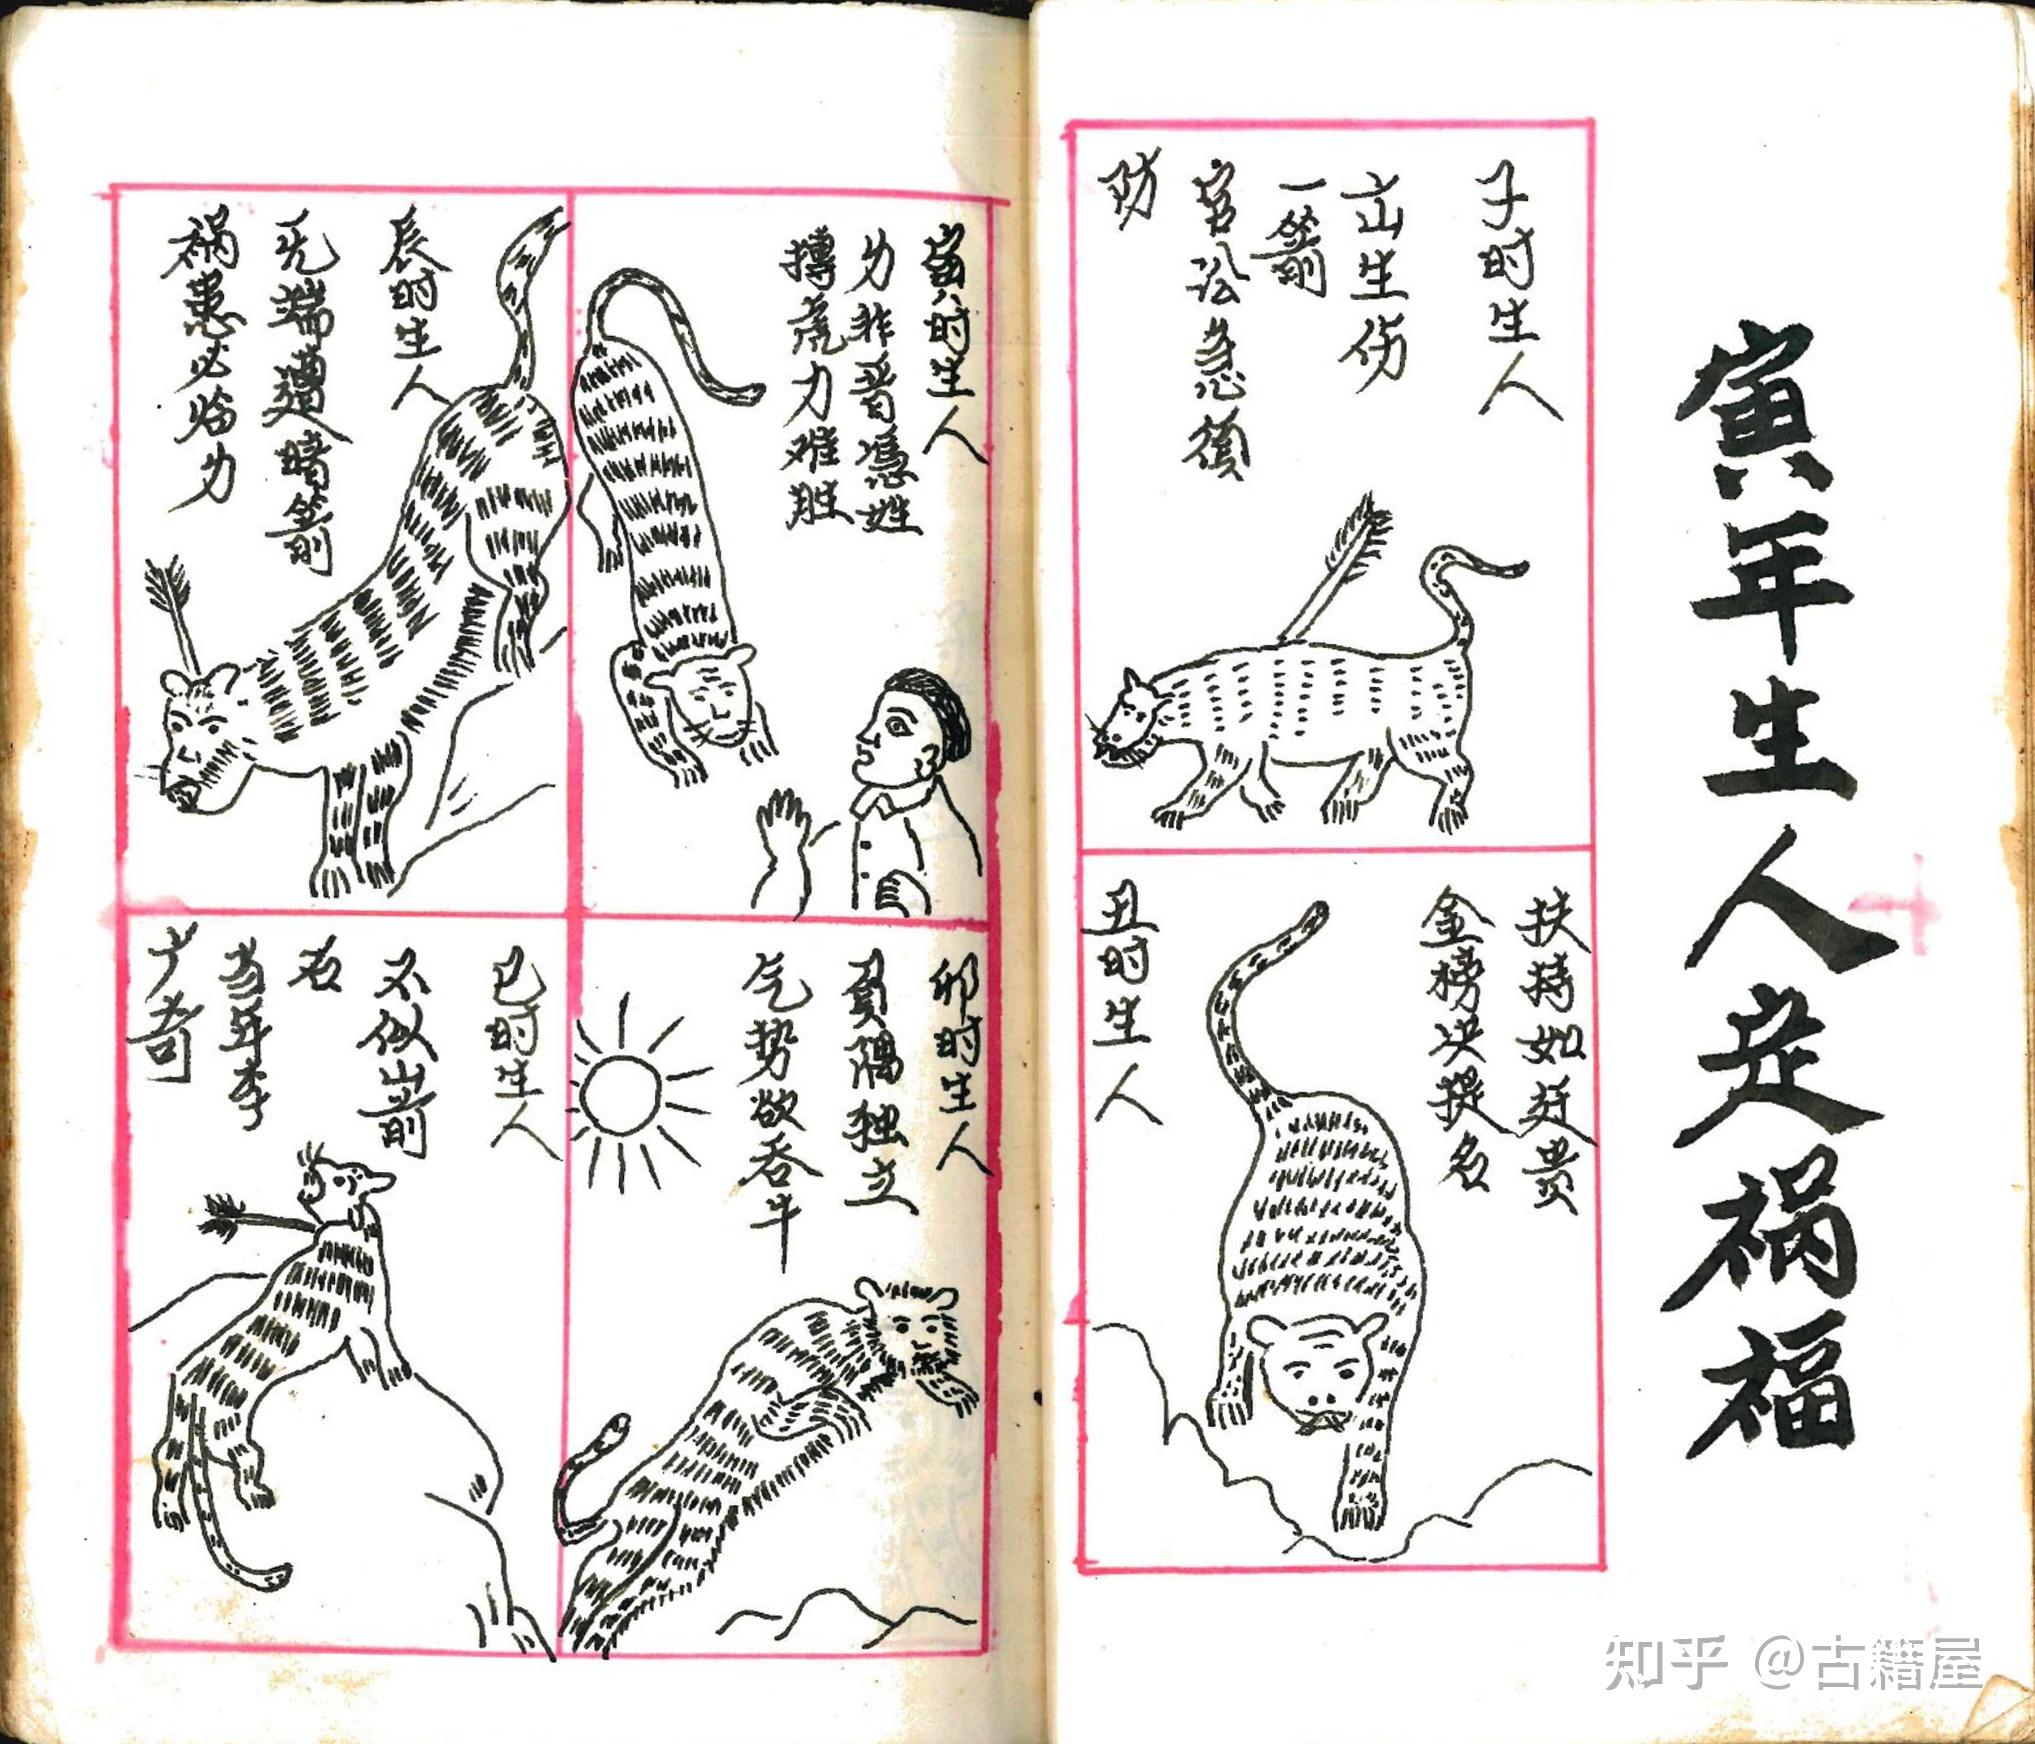 寅年生人走祸福
子时生人
生伤
一箭
官讼急须
防
扶持如贵
金榜决提名
丑时生人
寅时生人
力非晋憑姓
搏虎力难胜
辰时生人
无端遭暗箭
祸患必临力
卯时生人
負隅独立
气势欲吞牛
巳时生人
不似山前
石
当年李
广奇
知乎 @古籍屋